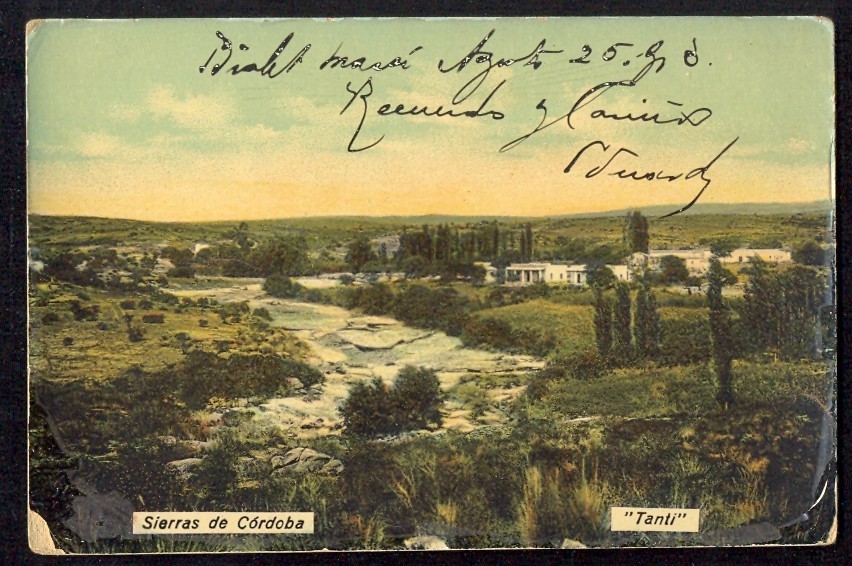 Bialet Massé Agosto 25. 9 8.
Recuerdo y Cariños
Eduardo
Sierras de Córdoba
"Tanti"